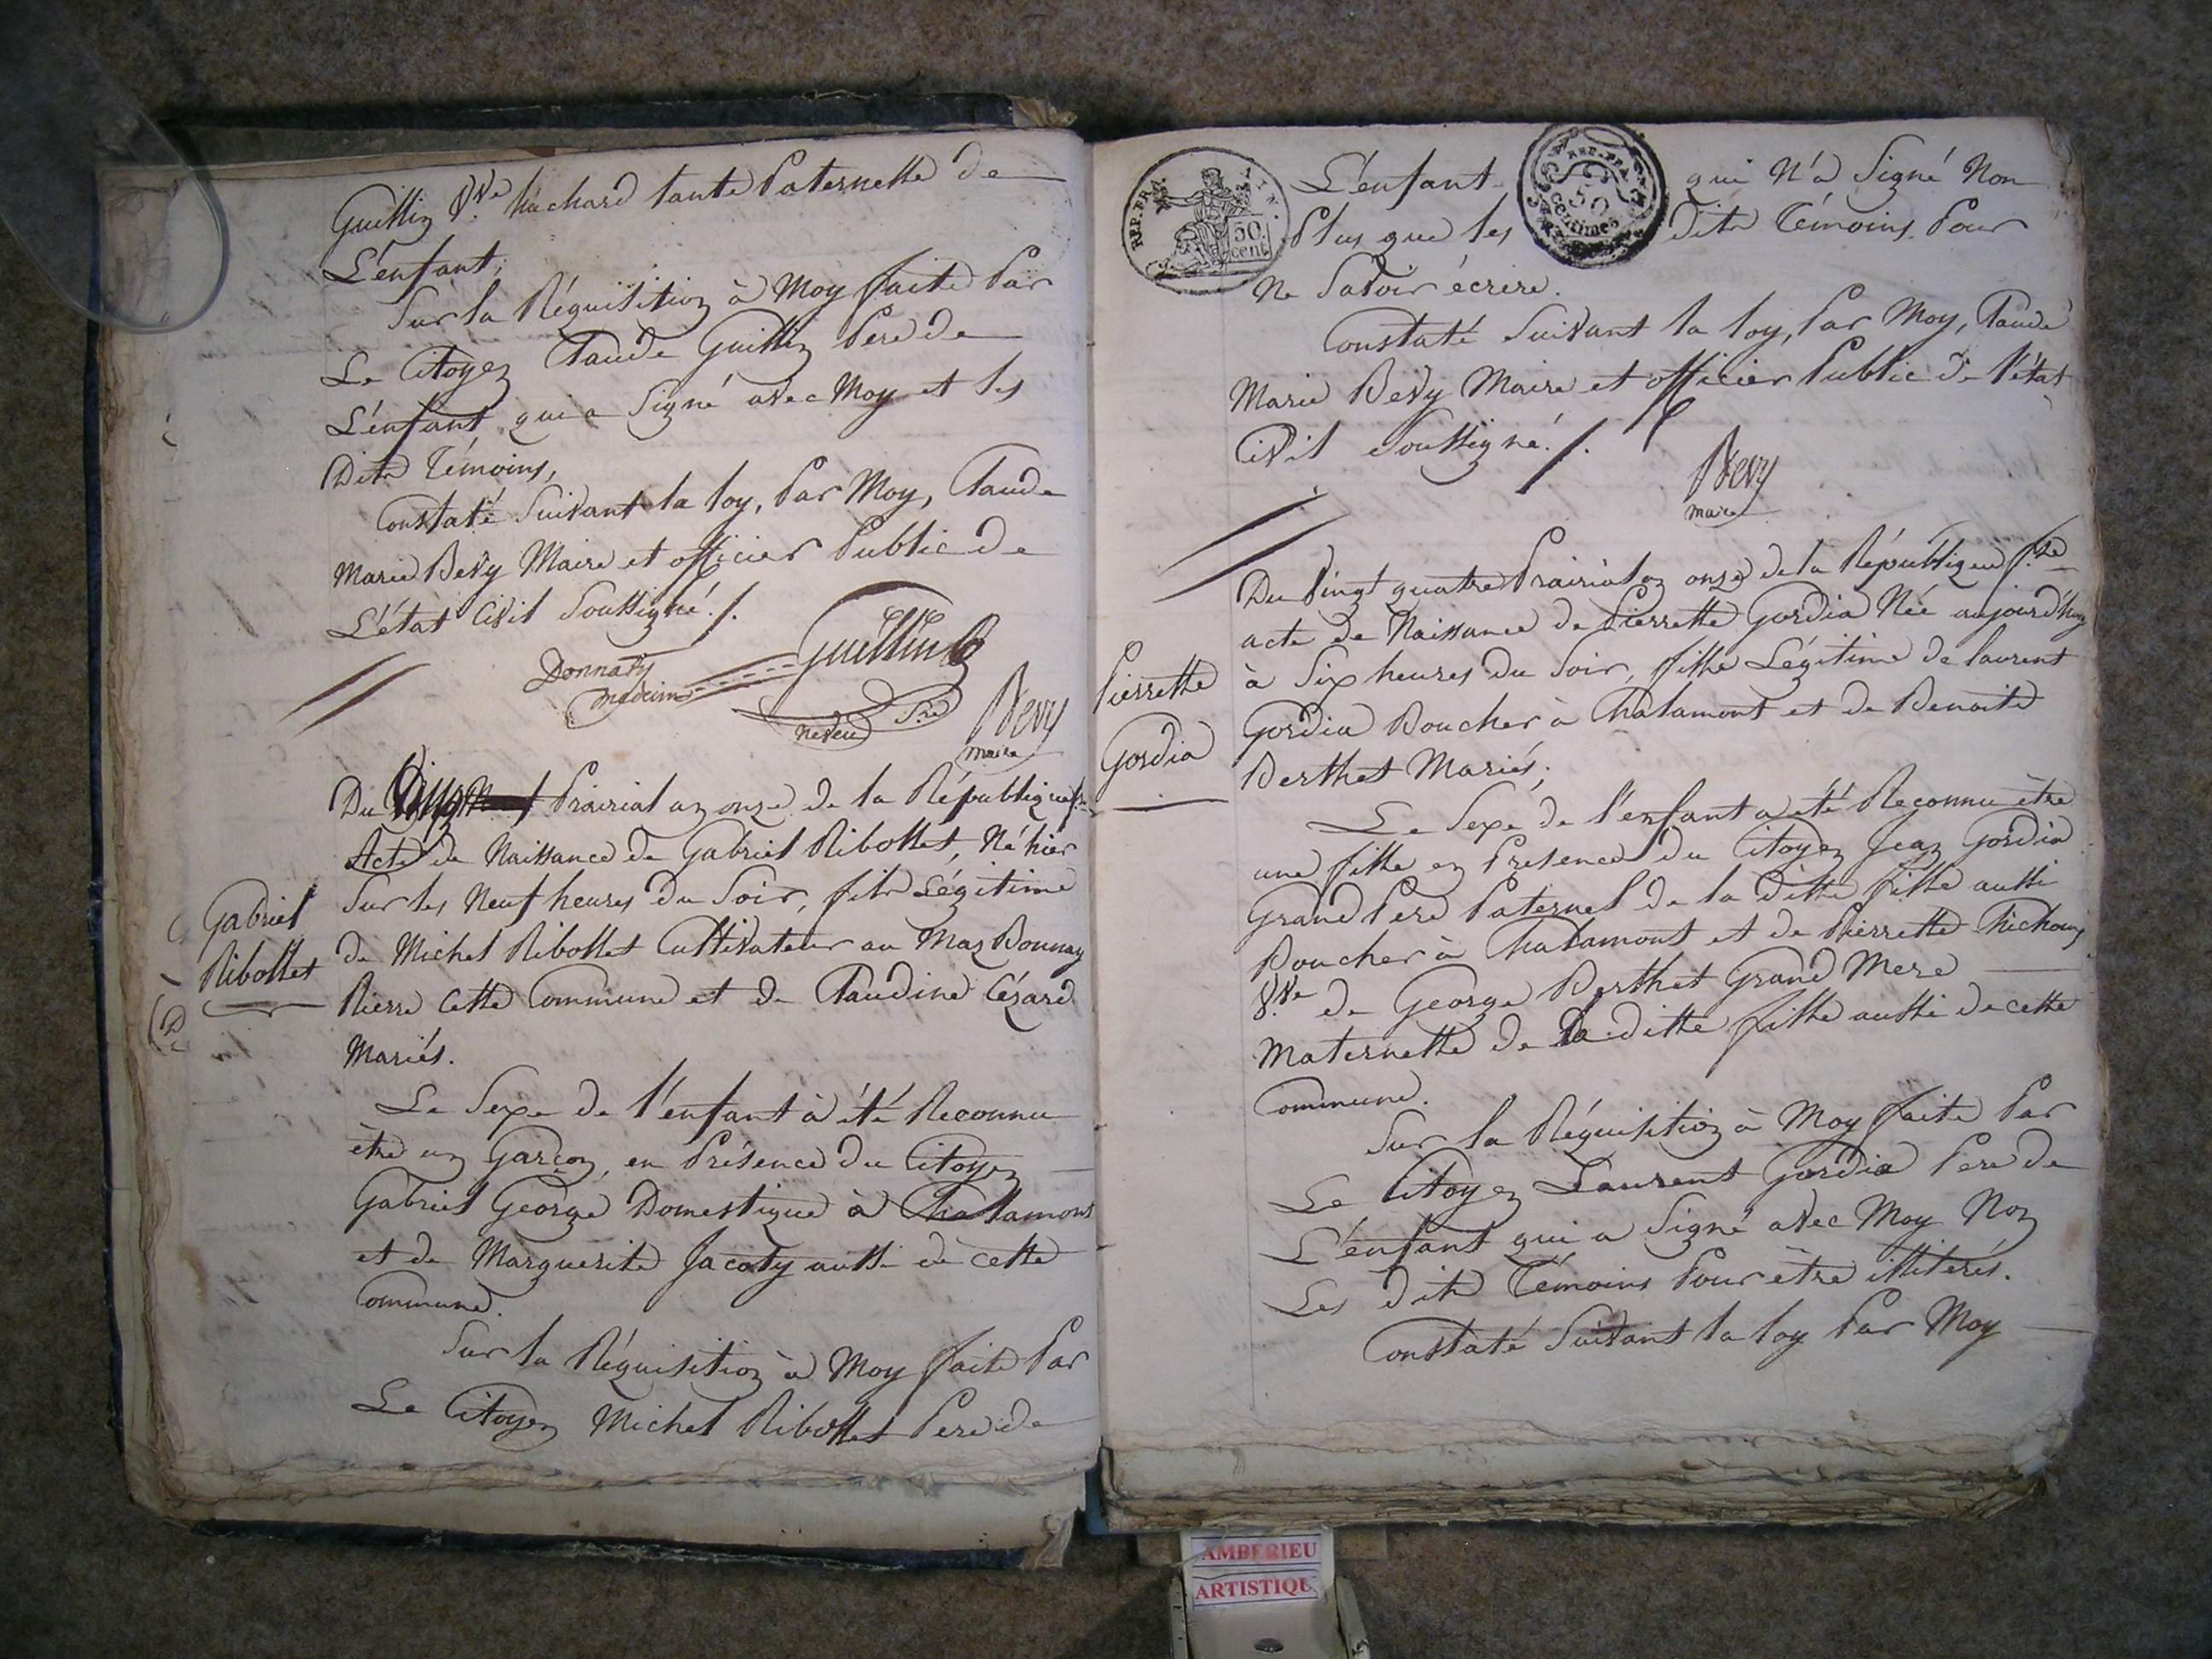 Guillin V.ve huchard tante Paternelle de
L'enfant,
Sur la Réquisition à Moy faite Par
Le Citoyen Claude Guillin Pere de
L'enfant qui a Signé avec Moy et les
Dits Témoins,
Constaté Suivant la loy, Par Moy, Claude
Marie Bevy Maire et officier Public de
L'état Civil Soussigné./.
Donnat
medecin
Guillin
neveu
Bevy
maire
Du Prairial an onze de la République
Gabriel
Ribollet
Acte de Naissance de Gabriel Ribollet, Né hier
Sur les Neuf heures du Soir, fils Légitime
de Michel Ribollet Cultivateur au Mas Bonnay
Rierre Cette Commune et de Claudine Cézard
Mariés.
Le Sexe de l'enfant à été Reconnu
être un Garçon, en Présence du Citoyen
Gabriel George Domestique à Chalamont
et de Marguerite Jacoty aussi de cette
Commune.
Sur la Réquisition à Moy faite Par
Le Citoyen Michel Ribollet Pere de
REP. FRA.
50
cent
REP. FRA.
50
centimes
L'enfant qui N'a Signé Non
Plus que les Dits Témoins Pour
Ne Savoir écrire.
Constaté Suivant la loy, Par Moy, Claude
Marie Bevy Maire et officier Public de l'état
Civil Soussigné./.
Bevy
maire
Du Vingt quatre Prairial an onze de la République f.se
Pierrette
Gordia
acte de Naissance de Pierrette Gordia Née aujourd'huy
à Six heures du Soir, fille Légitime de laurent
Gordia Boucher à Chalamont et de Benoite
Berthet Mariés;
Le Sexe de l'enfant a été Reconnu être
une fille en Presence du Citoyen Jean Gordia
Grand Pere Paternel de la ditte fille aussi
Boucher à Chalamont et de Pierrette
V.ve de George Berthet Grand Mere
Maternelle de La ditte fille aussi de cette
Commune.
Sur la Réquisition à Moy faite Par
Le Citoyen Laurent Gordia Pere de
L'enfant qui a Signé avec Moy Non
Les dits Témoins Pour être illiterés.
Constaté Suivant la loy Par Moy
AMBERIEU
ARTISTIQU